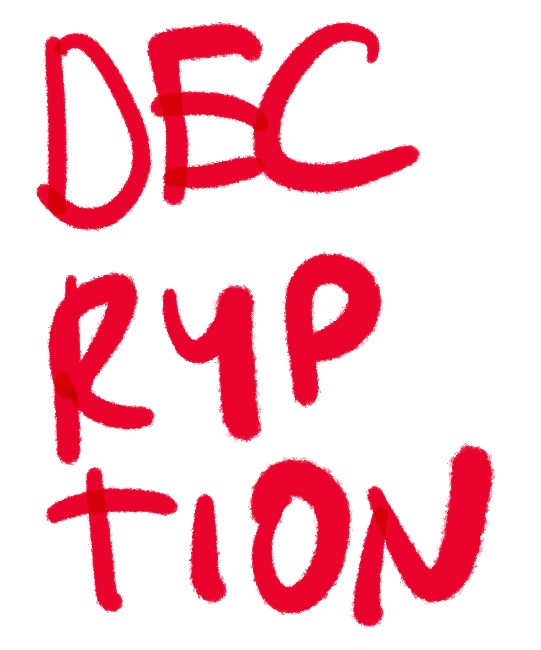 DEC
RYP
TION